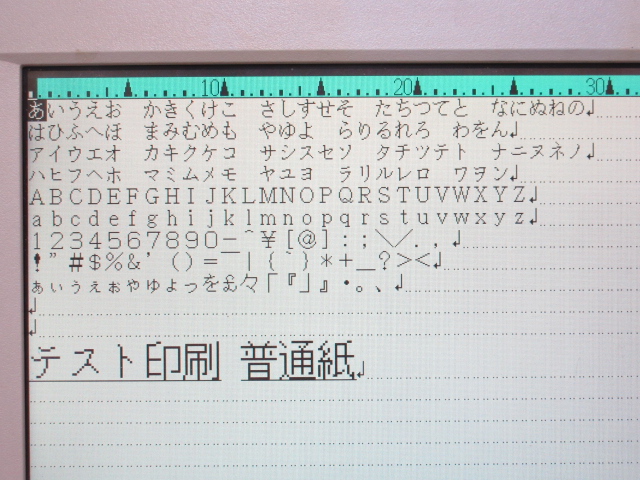 10 20 30
あいうえお　かきくけこ　さしすせそ　たちつてと　なにぬねの
はひふへほ　まみむめも　やゆよ　らりるれろ　わをん
アイウエオ　カキクケコ　サシスセソ　タチツテト　ナニヌネノ
ハヒフヘホ　マミムメモ　ヤユヨ　ラリルレロ　ワヲン
ＡＢＣＤＥＦＧＨＩＪＫＬＭＮＯＰＱＲＳＴＵＶＷＸＹＺ
ａｂｃｄｅｆｇｈｉｊｋｌｍｎｏｐｑｒｓｔｕｖｗｘｙｚ
１２３４５６７８９０－＾￥［＠］：；＼／．，
！”＃＄％＆’（）＝￣｜｛｀｝＊＋＿？＞＜
ぁぃぅぇぉゃゅょっを£々「『」』・。、
テスト印刷　普通紙